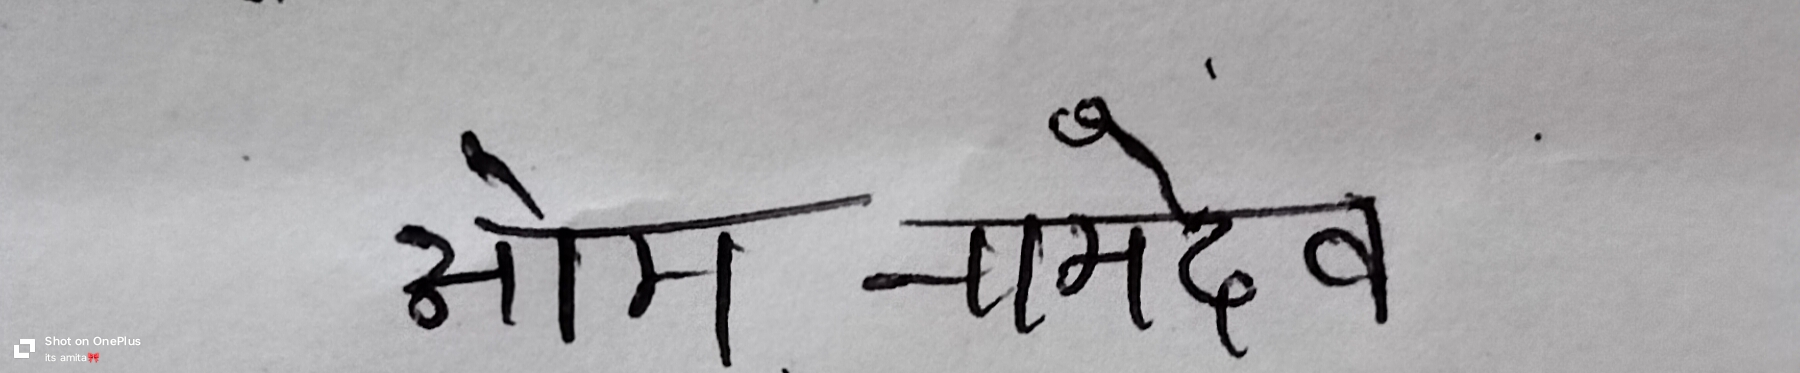 ओम नामदेव
Shot on OnePlus
its amita🎀